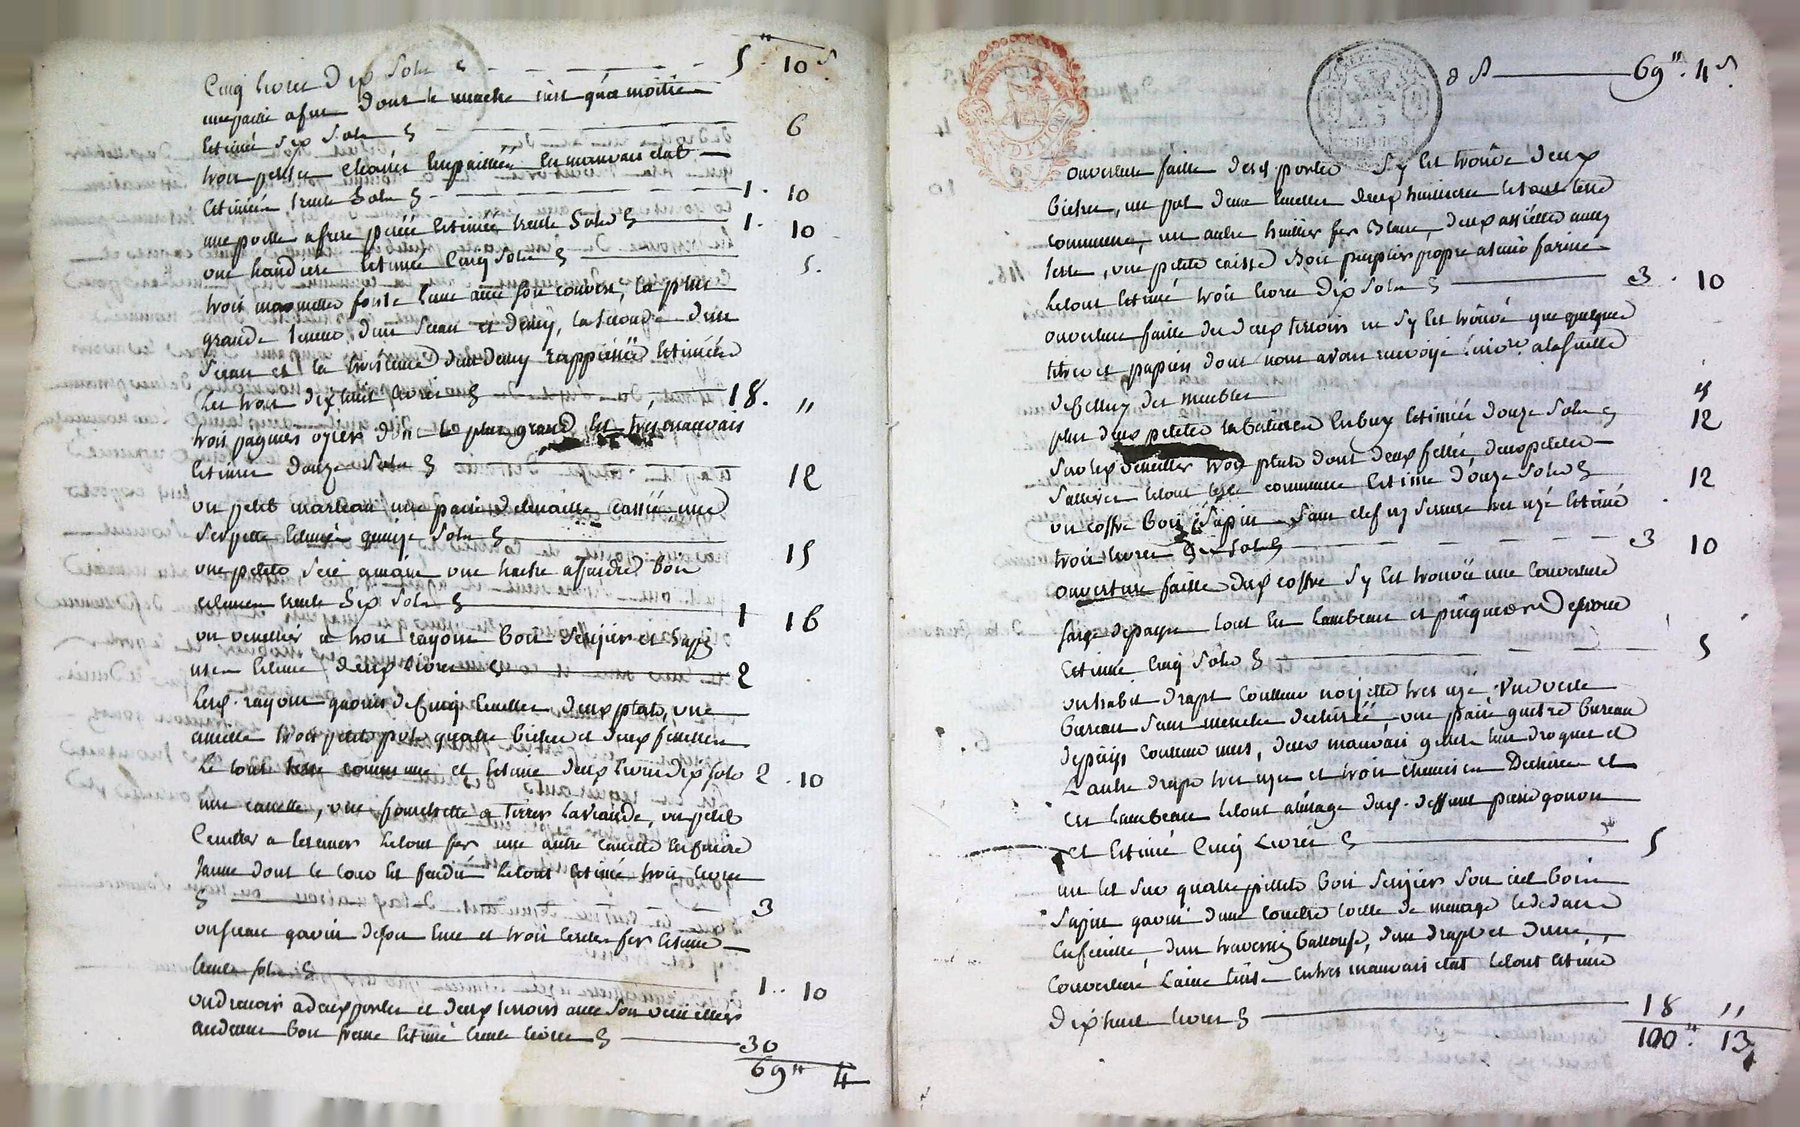 Cinq livres dix sols 5" 10s
une paile afeu dont le manche n'est qu'a moitié
Estimé six sols 6
trois petites chaises Empaillées En mauvais état
Estimées trente sols 1. 10
une poille a frire percée Estimée trente sols 1. 10
une Estimée Cinq sols 5.
trois marmites fonte l'une avec son couvert, la plus
grande tenant d'un seau et demy, la seconde d'un
seau et la troisieme d'un demy rappiessée Estimées
Les trois dix huit livres 18. "
trois pagnes ozier dont le plus grand Est tres mauvais
Estimés douze sols 12
un petit marteau une paire de tenaille cassée une
serpette Estimés quinze sols 15
une petite scie a main une hache a fendre bois
Estimées trente six sols 1 16
un veselier a trois rayons bois serizier et sapin
usé Estimé deux livres 2
Les rayons garnis de Cinq Ecuelles deux plats, une
assiette trois petits pots quatre bichets et deux
Le tout terre commune et Estimé deux livres dix sols 2. 10
une casette, une fourchette a tirer la viande, un petit
Cuiller a Ecumer Le tout fer une autre Casette En cuivre
jaune dont le Est fendu Le tout Estimé trois livres
3
un seau garni de son Ence et trois cercles fer Estimé
trente sols 1.. 10
un dressoir a deux portes et deux tiroirs avec son
audessus bois frene Estimé trente livres 30
69" 4
d S 69". 4s
ouverture faitte des portes s'y Est trouvé deux
bichets, un pot deux Ecuelles deux huiliers le tout terre
commune, un autre huilier fer Blanc, deux assiettes aussy
terre, une petite caisse Bois peuplier propre a tenir farine
Le tout Estimé trois livres dix sols 3. 10
ouverture faitte des deux tirroirs ne s'y Est trouvé que quelques
titres et papiers dont nous avons renvoyé l'invre a la suitte
de Celluy des meubles "
plus deux petites En buy Estimées douze sols 12
Six cuilles trois plats dont deux fellés deux petites
salieres le tout terre commune Estimé douze sols 12
un coffre bois sapin sans clef ny serrure tres usé Estimé
trois livres dix sols 3 10
ouverture faitte du coffre s'y Est trouvé une Couverture
large de pays tout En Lambeau et
Estimée Cinq sols 5
un habit drapt Couleur noizette tres usé une veste
bureau sans manche dechirée une paire guetre bureau
de pays Couleur mus, deux mauvais gillets l'un droguet et
L'autre drapt tres usés et trois chemises Dechirées et
En Lambeau le tout a l'usage du deffunt pierre gonon
et Estimé Cinq Livres 5
un Lit sur quatre pillets bois serizier son ciel bois
sapin garni d'une couetre toille de menage le dedans
En feuille, d'un traversin , d'un drapt et d'une
Couverture Laine tirée En tres mauvais état le tout Estimé
dix huit livres 18 "
100". 13